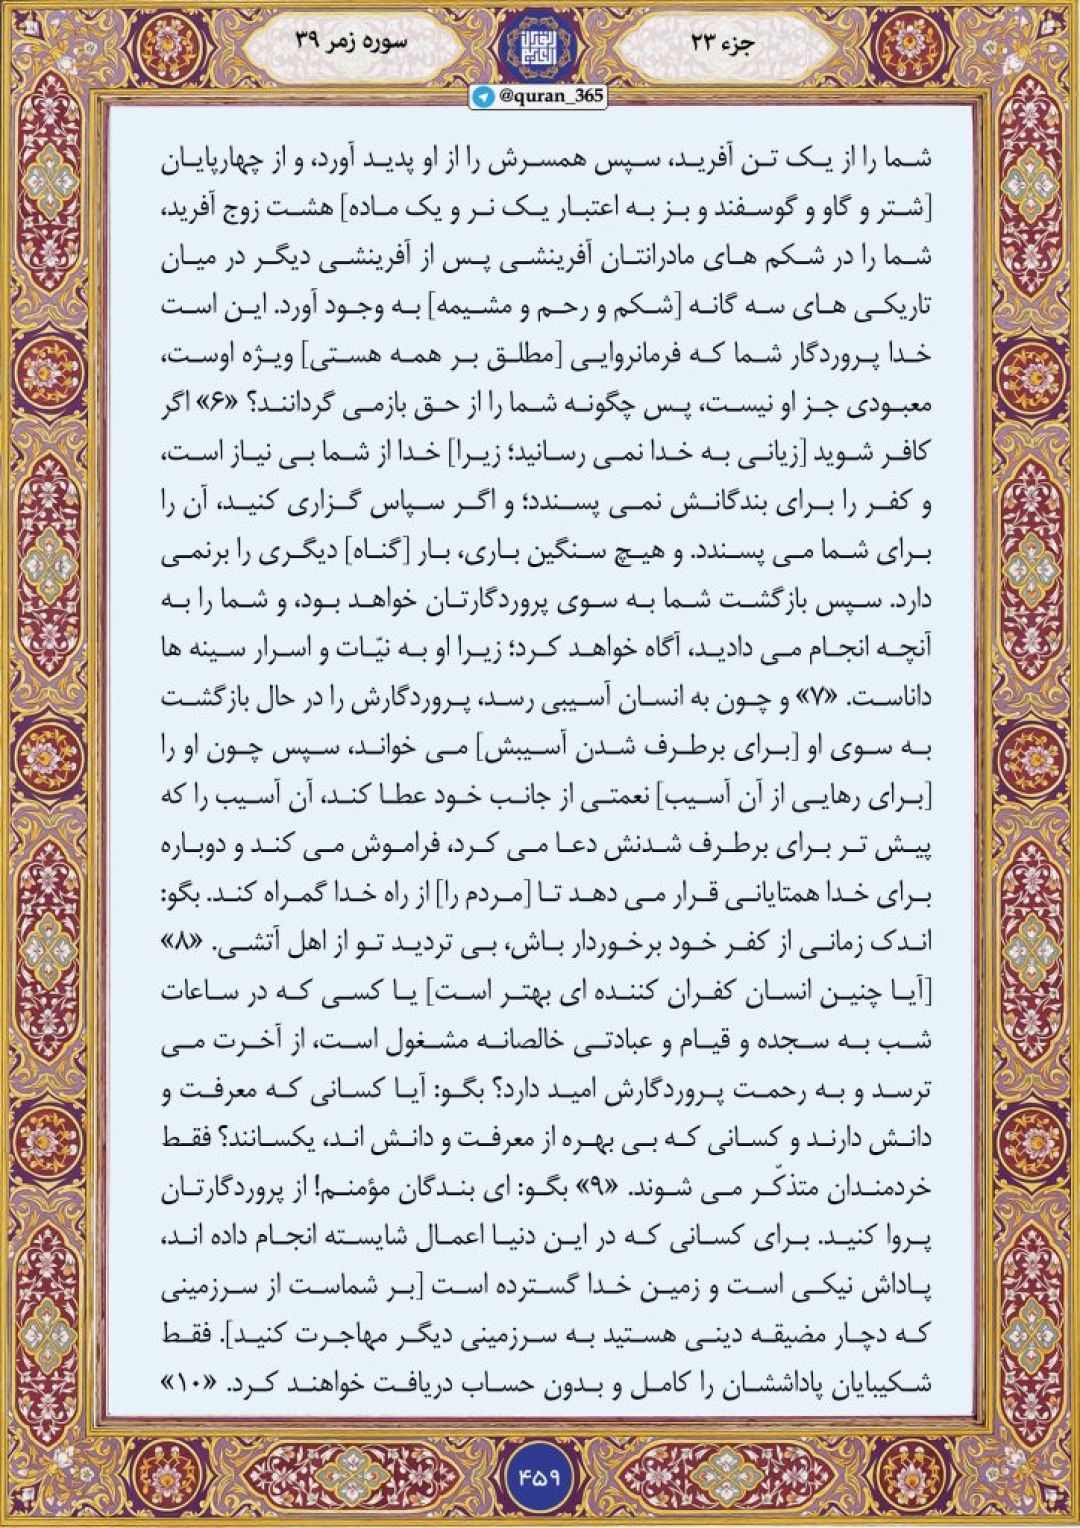 جزء ۲۳
سوره زمر ۳۹
@quran_365
شما را از یک تن آفرید، سپس همسرش را از او پدید آورد، و از چهارپایان
[شتر و گاو و گوسفند و بز به اعتبار یک نر و یک ماده] هشت زوج آفرید،
شما را در شکم های مادرانتان آفرینشی پس از آفرینشی دیگر در میان
تاریکی های سه گانه [شکم و رحم و مشیمه] به وجود آورد. این است
خدا پروردگار شما که فرمانروایی [مطلق بر همه هستی] ویژه اوست،
معبودی جز او نیست، پس چگونه شما را از حق بازمی گردانند؟ «۶» اگر
کافر شوید [زیانی به خدا نمی رسانید؛ زیرا] خدا از شما بی نیاز است،
و کفر را برای بندگانش نمی پسندد؛ و اگر سپاس گزاری کنید، آن را
برای شما می پسندد. و هیچ سنگین باری، بار [گناه] دیگری را برنمی
دارد. سپس بازگشت شما به سوی پروردگارتان خواهد بود، و شما را به
آنچه انجام می دادید، آگاه خواهد کرد؛ زیرا او به نیّات و اسرار سینه ها
داناست. «۷» و چون به انسان آسیبی رسد، پروردگارش را در حال بازگشت
به سوی او [برای برطرف شدن آسیبش] می خواند، سپس چون او را
[برای رهایی از آن آسیب] نعمتی از جانب خود عطا کند، آن آسیب را که
پیش تر برای برطرف شدنش دعا می کرد، فراموش می کند و دوباره
برای خدا همتایانی قرار می دهد تا [مردم را] از راه خدا گمراه کند. بگو:
اندک زمانی از کفر خود برخوردار باش، بی تردید تو از اهل آتشی. «۸»
[آیا چنین انسان کفران کننده ای بهتر است] یا کسی که در ساعات
شب به سجده و قیام و عبادتی خالصانه مشغول است، از آخرت می
ترسد و به رحمت پروردگارش امید دارد؟ بگو: آیا کسانی که معرفت و
دانش دارند و کسانی که بی بهره از معرفت و دانش اند، یکسانند؟ فقط
خردمندان متذکّر می شوند. «۹» بگو: ای بندگان مؤمنم! از پروردگارتان
پروا کنید. برای کسانی که در این دنیا اعمال شایسته انجام داده اند،
پاداش نیکی است و زمین خدا گسترده است [بر شماست از سرزمینی
که دچار مضیقه دینی هستید به سرزمینی دیگر مهاجرت کنید]. فقط
شکیبایان پاداششان را کامل و بدون حساب دریافت خواهند کرد. «۱۰»
۴۵۹